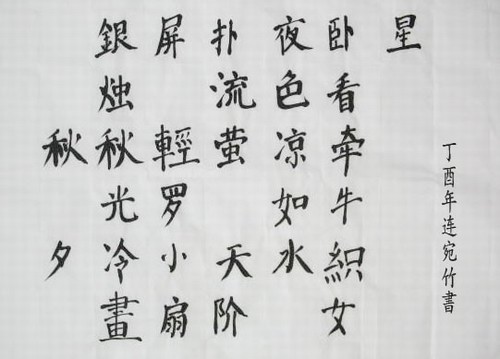 秋夕
銀烛秋光冷畫
屏 輕罗小扇
扑流萤 天阶
夜色凉如水
卧看牵牛織女
星
丁酉年连宛竹書